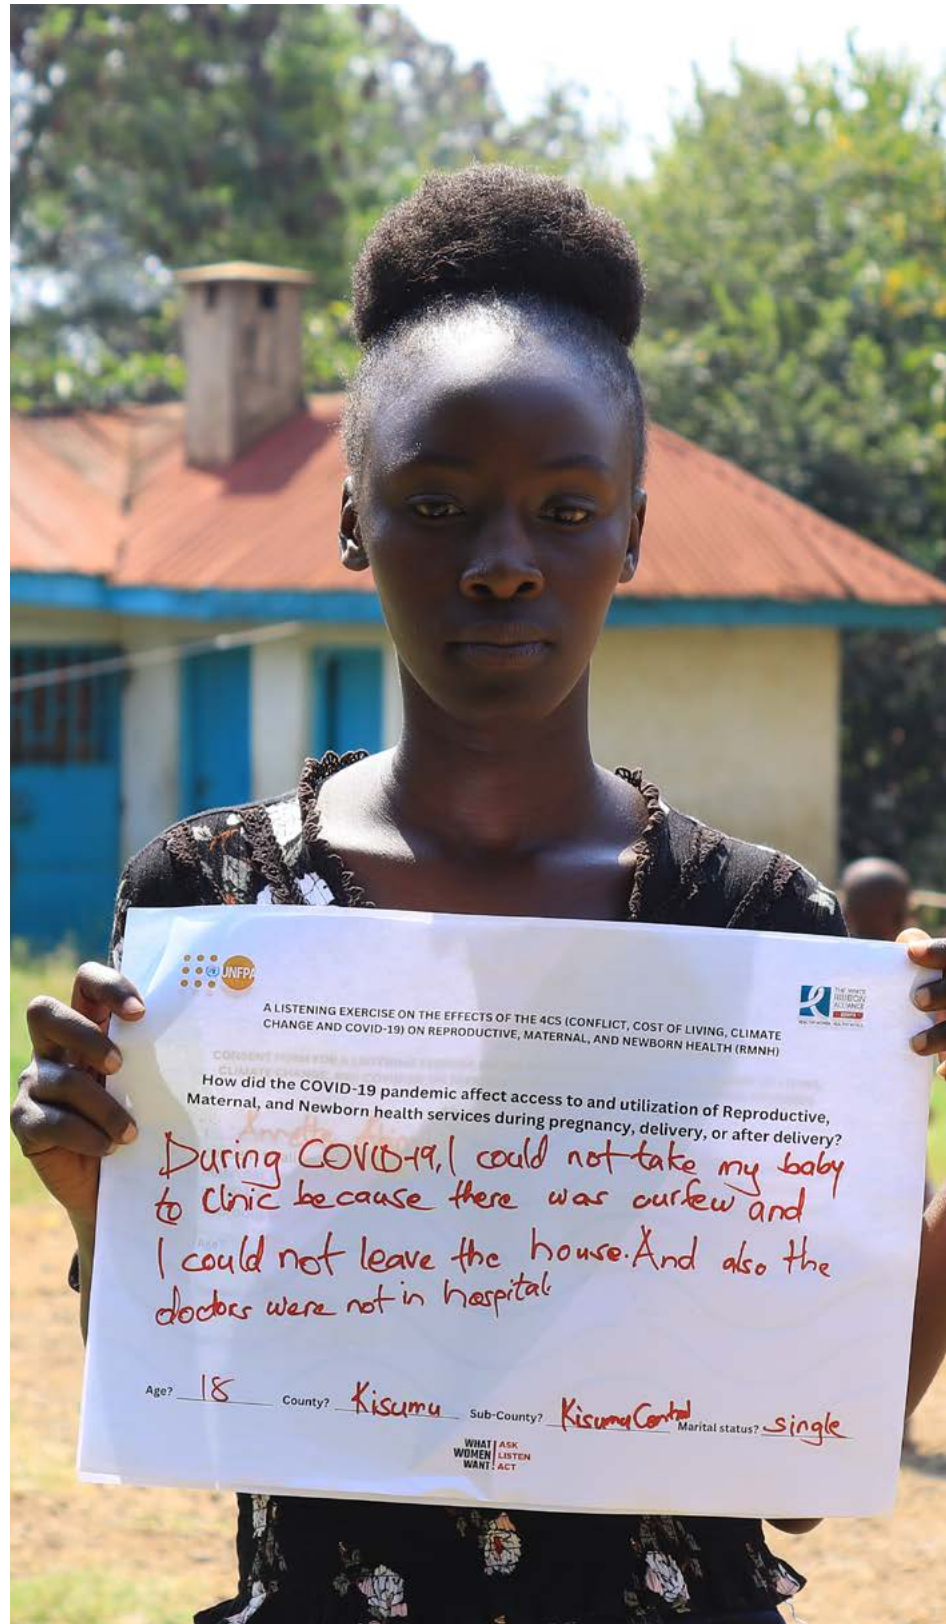 UNFPA
THE WHITE
RIBBON
ALLIANCE
KENYA
A LISTENING EXERCISE ON THE EFFECTS OF THE 4CS (CONFLICT, COST OF LIVING, CLIMATE
CHANGE AND COVID-19) ON REPRODUCTIVE, MATERNAL, AND NEWBORN HEALTH (RMNH)
How did the COVID-19 pandemic affect access to and utilization of Reproductive,
Maternal, and Newborn health services during pregnancy, delivery, or after delivery?
During COVID-19, I could not take my baby
to Clinic because there was curfew and
I could not leave the house. And also the
doctors were not in hospital.
Age? 18 County? Kisumu Sub-County? Kisumu Central Marital status? single
WHAT ASK
WOMEN LISTEN
WANT! ACT